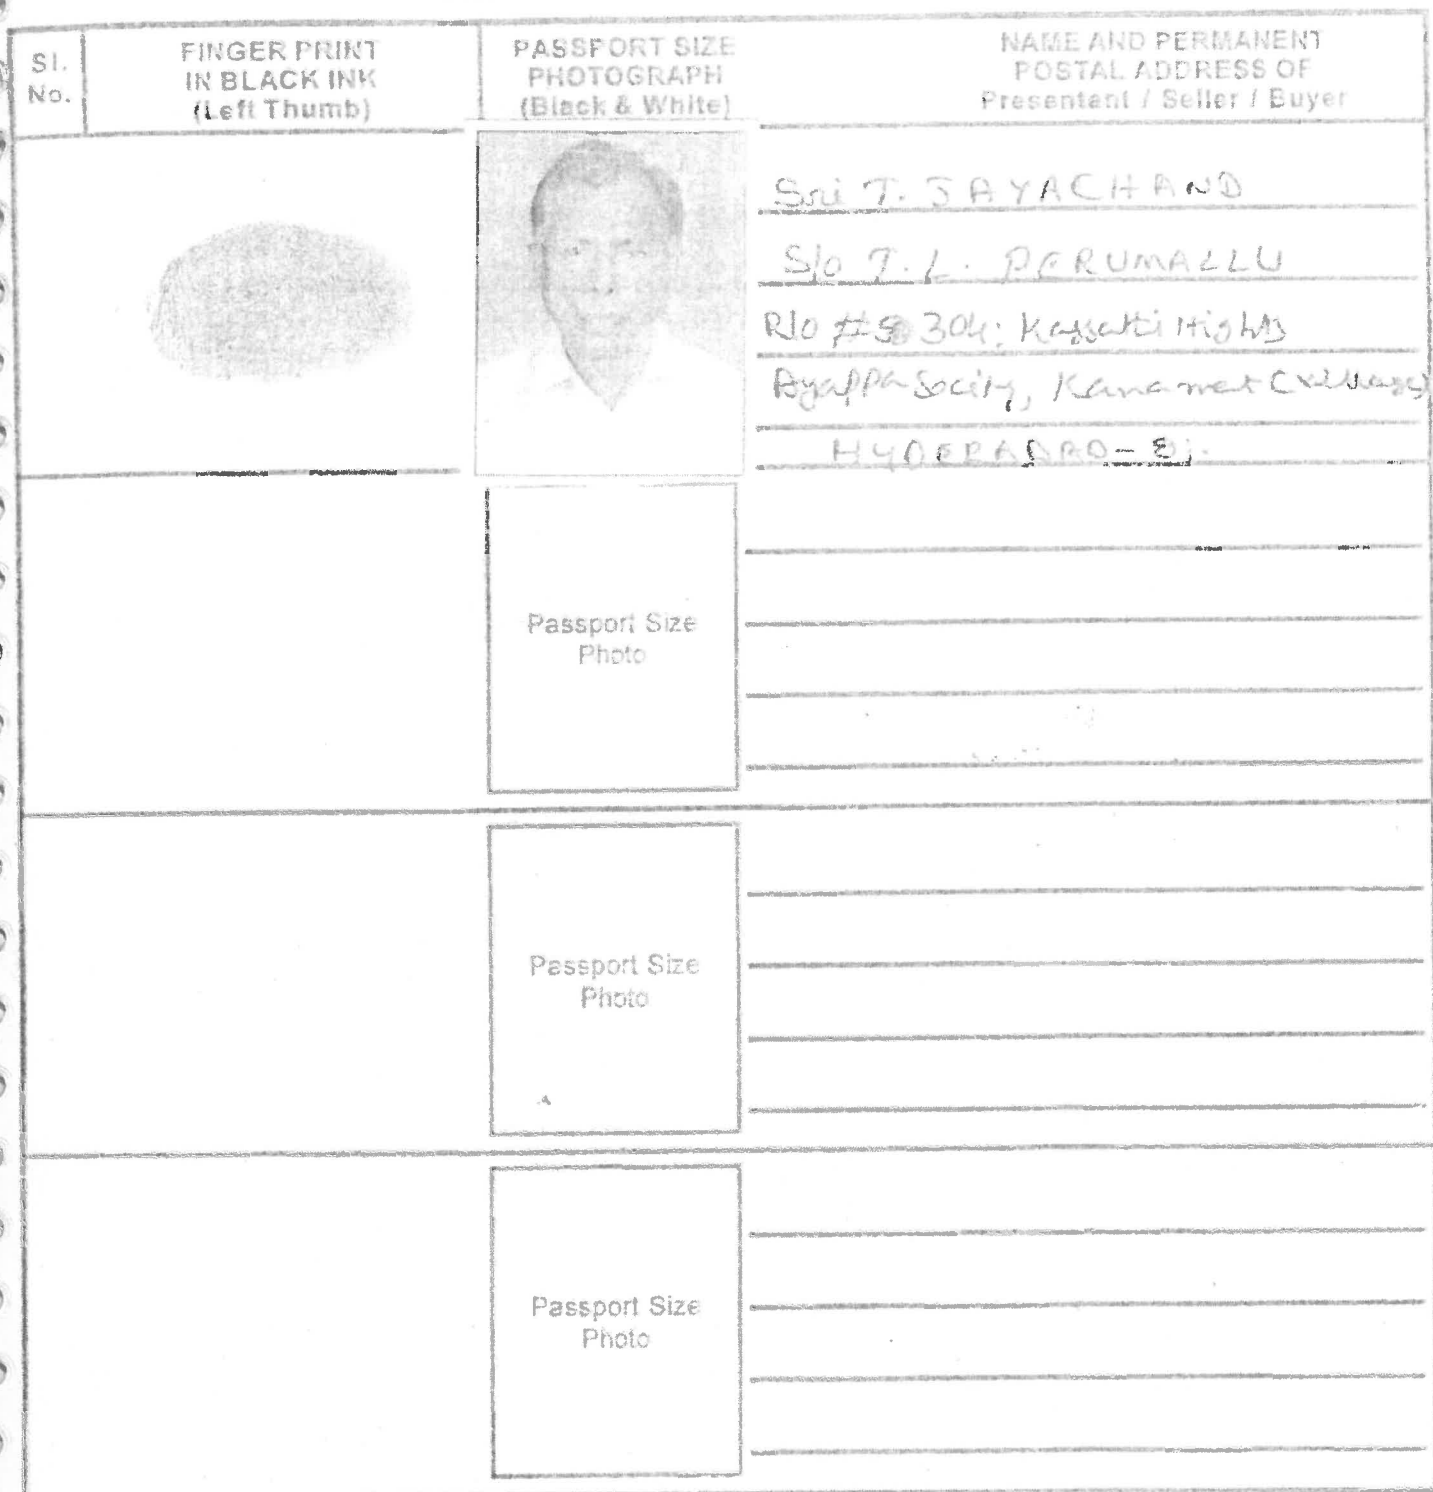 Sl.
No.
FINGER PRINT
IN BLACK INK
(Left Thumb)
PASSPORT SIZE
PHOTOGRAPH
(Black & White)
NAME AND PERMANENT
POSTAL ADDRESS OF
Presentant / Seller / Buyer
Sri T. JAYACHAND
S/o T. L. PERUMALLU
R/o # 304;
Ayappa Socity, Kanamet (Village)
HYDERABAD -
Passport Size
Photo
Passport Size
Photo
Passport Size
Photo